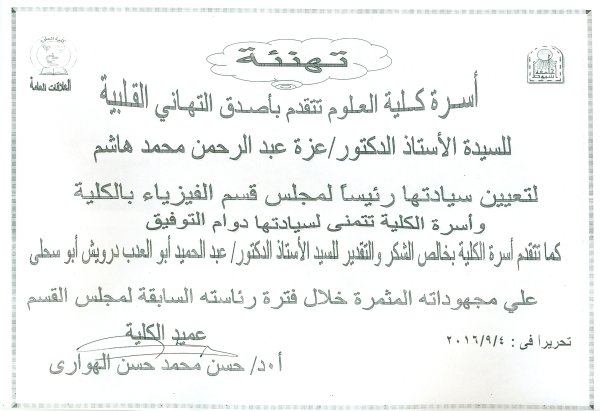 تهنئة
كلية العلوم
العلاقات العامة
جامعة
أسيوط
أسرة كلية العلوم تتقدم بأصدق التهاني القلبية
للسيدة الأستاذ الدكتور/عزة عبد الرحمن محمد هاشم
لتعيين سيادتها رئيساً لمجلس قسم الفيزياء بالكلية
وأسرة الكلية تتمنى لسيادتها دوام التوفيق
كما تتقدم أسرة الكلية بخالص الشكر والتقدير للسيد الأستاذ الدكتور/ عبد الحميد أبو العدب درويش أبو سحلى
علي مجهوداته المثمرة خلال فترة رئاسته السابقة لمجلس القسم
تحريراً فى : ٢٠١٦/٩/٤
عميد الكلية
أ.د/ حسن محمد حسن الهوارى